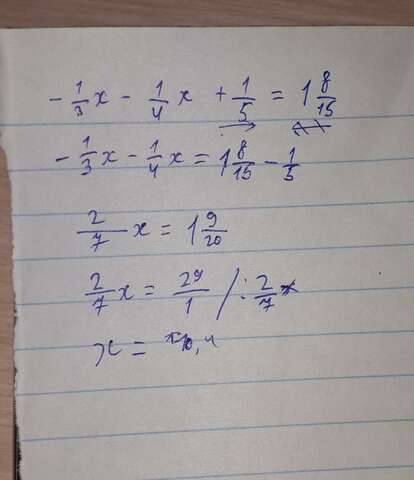 -1/3 x - 1/4 x + 1/5 = 1 8/15
-1/3 x - 1/4 x = 1 8/15 - 1/5
2/7 x = 1 9/20
2/7 x = 29/1 / : 2/7
x =